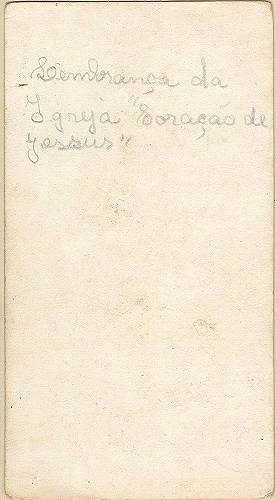 Lembrança da
Igreja "Coração de
Jessus"